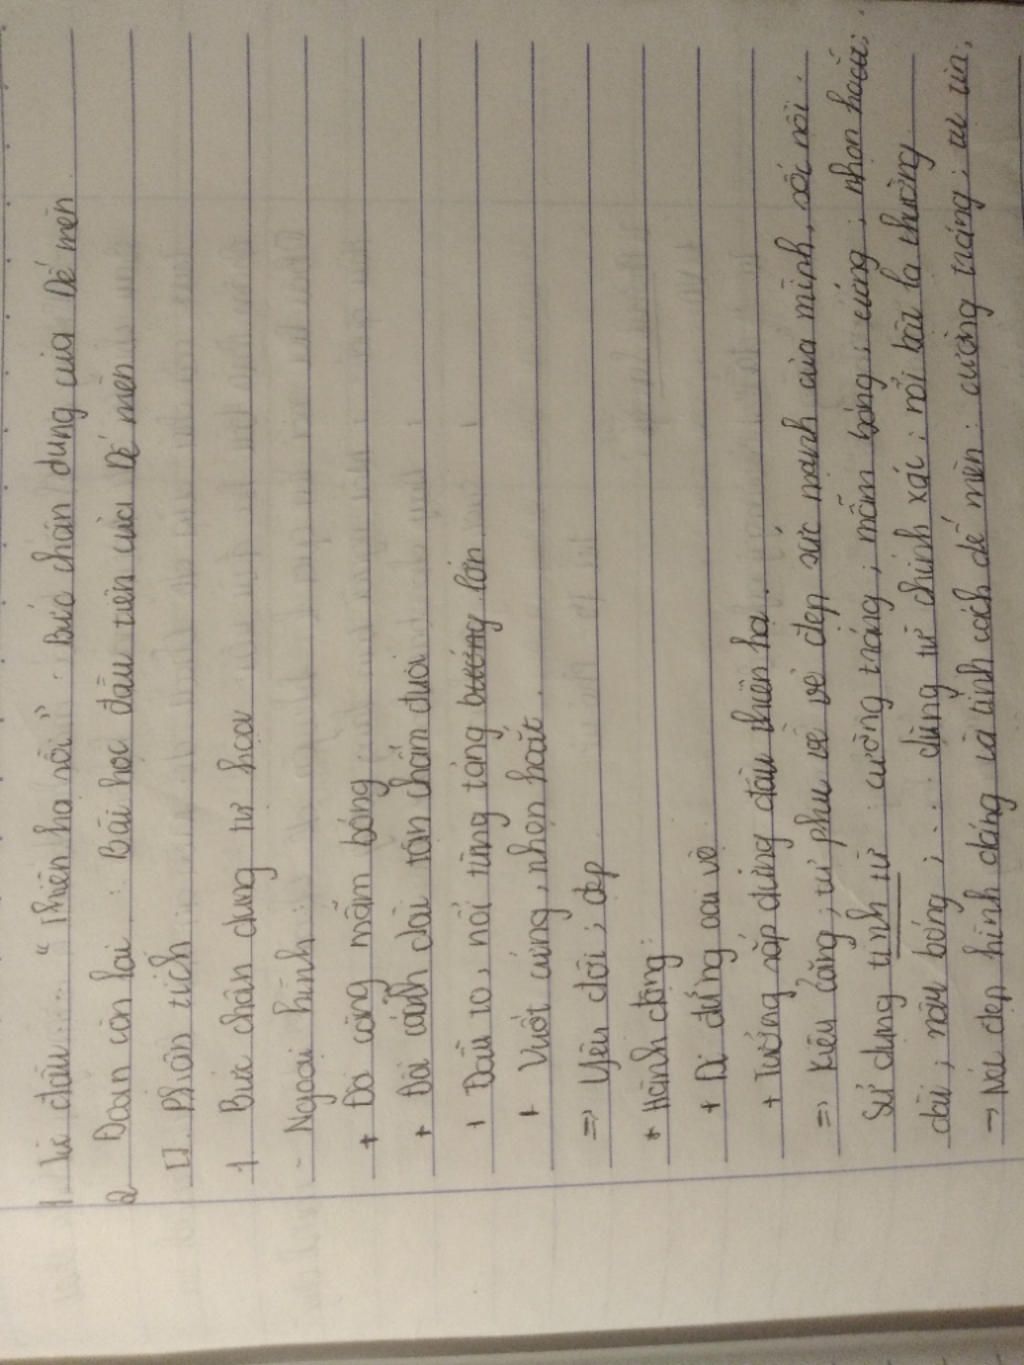 1 Từ đầu..... "thiên hạ rồi" : Bức chân dung của Dế mèn
2 Đoạn còn lại : Bài học đầu tiên của Dế mèn
II. Phân tích
1 Bức chân dung tự họa
- Ngoại hình:
+ Đôi càng mẫm bóng
+ Đôi cánh dài tận chấm đuôi
+ Đầu to, nổi từng tảng bướng lớn
+ Vuốt cứng, nhọn hoắt.
=> Yêu đời; đẹp
* Hành động:
+ Đi đứng oai vệ
+ Tưởng sắp đứng đầu thiên hạ.
=> Kiêu căng; tự phụ về vẻ đẹp sức mạnh của mình, sốc nổi.
Sử dụng tính từ : cường tráng; mẫm bóng; cứng; nhọn hoắt;
dài; nâu bóng; ... dùng từ chính xác; rồi bài la thường
→ Nét đẹp hình dáng và tính cách dế mèn: cường tráng; tự tin;